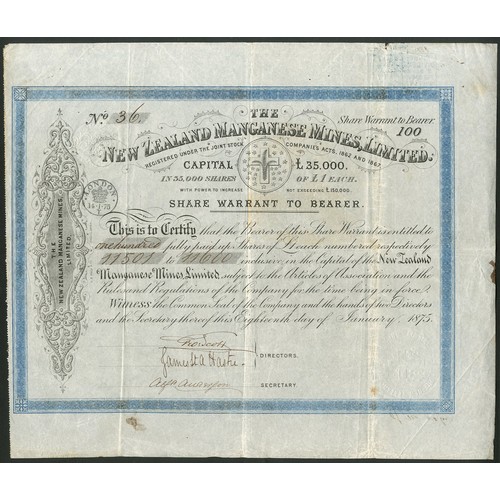 No 36
THE
Share Warrant to Bearer
100
NEW ZEALAND MANGANESE MINES, LIMITED.
REGISTERED UNDER THE JOINT STOCK COMPANIES ACTS, 1862 AND 1867.
CAPITAL £35.000.
IN 35,000 SHARES OF £1 EACH.
WITH POWER TO INCREASE NOT EXCEEDING £150,000.
SHARE WARRANT TO BEARER.
LONDON
THE
NEW ZEALAND MANGANESE MINES,
LIMITED.
This is to Certify that the Bearer of this Share Warrant is entitled to
one hundred fully paid up Shares of £1 each numbered respectively
11501 to 11600 inclusive, in the Capital of the New Zealand
Manganese Mines Limited, subject to the Articles of Association and the
Rules and Regulations of the Company for the time being in force.
Witness the Common Seal of the Company and the hands of two Directors
and the Secretary thereof this Eighteenth day of January 1875.
DIRECTORS.
SECRETARY.